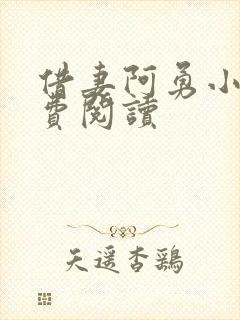 借妻阿勇小
費閱讀
天遥杏鶏